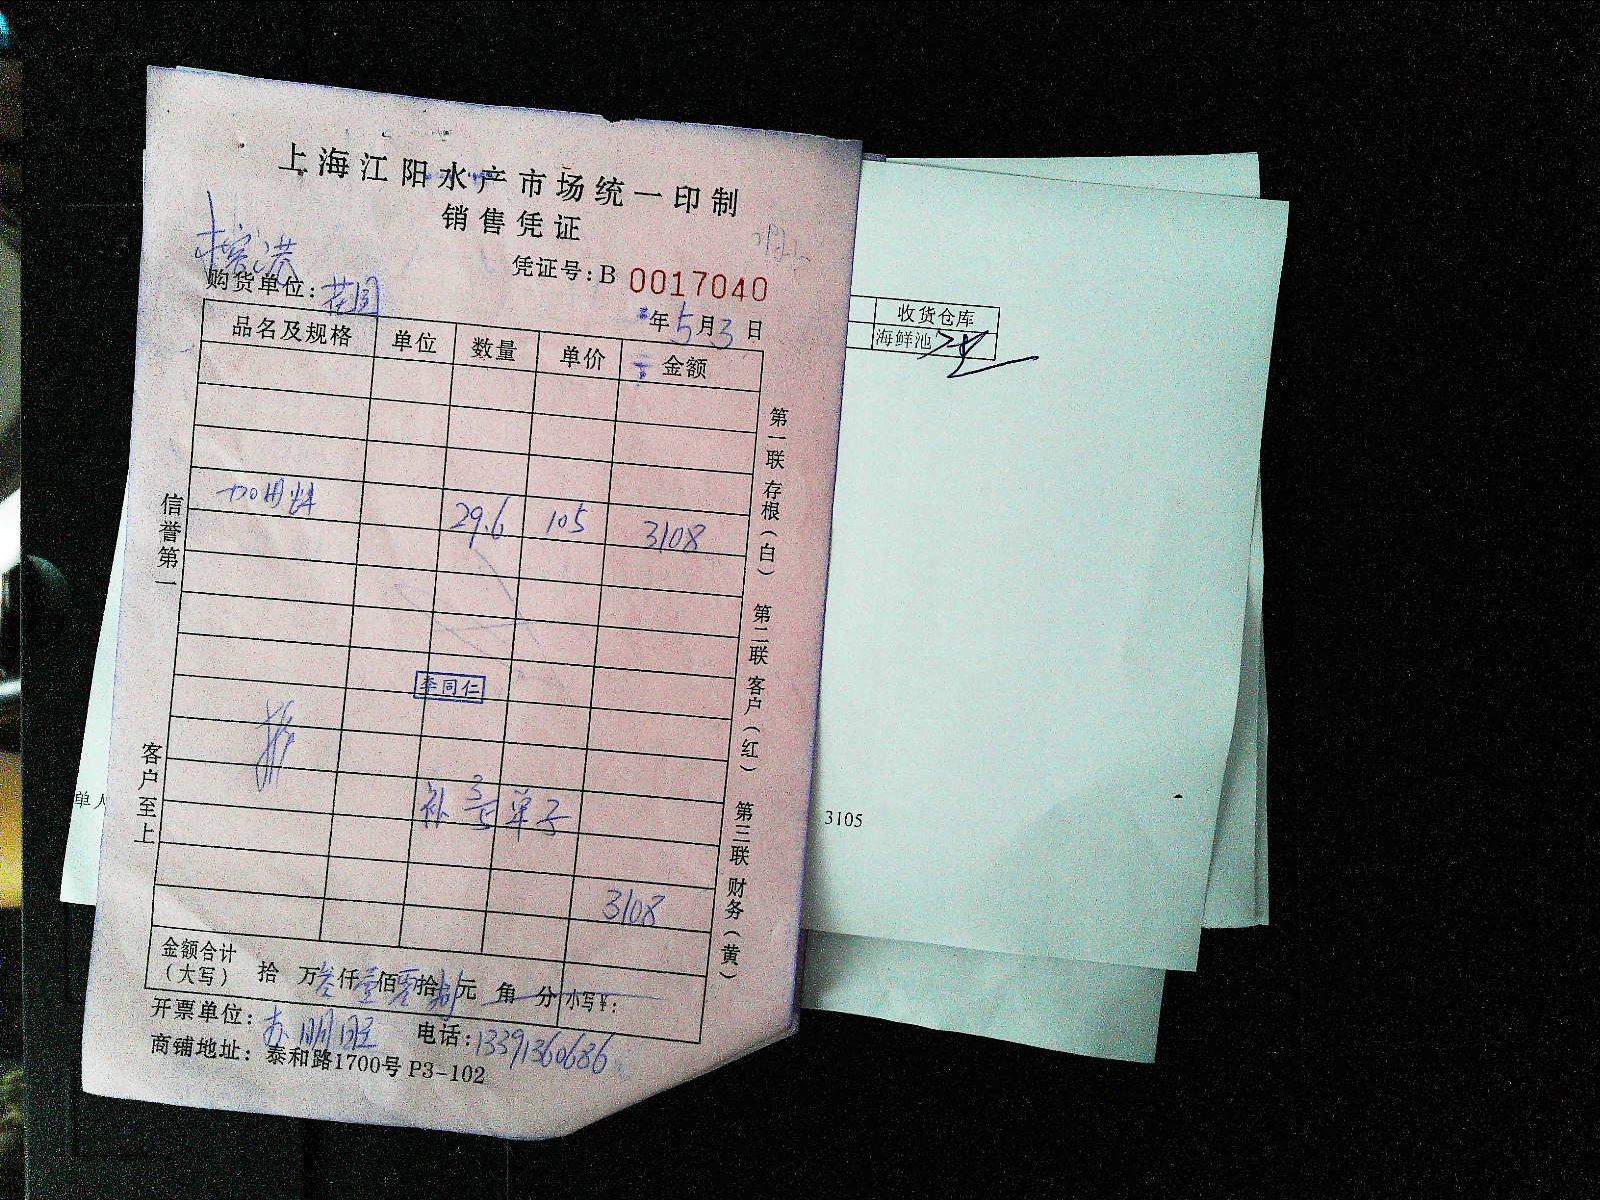 上海江阳水产市场统一印制
销售凭证
凭证号:B 0017040
购货单位:花园
年5月3日
品名及规格 单位 数量 单价 金额
29.6 105 3108
李同仁
补 3/5 单子
3108
金额合计(大写) 拾 万叁仟壹佰零拾捌元 角 分 小写¥:
开票单位: 电话:13391360686
商铺地址: 泰和路1700号 P3-102
信誉第一
客户至上
第一联 存根(白) 第二联 客户(红) 第三联 财务(黄)
收货仓库
海鲜池
单人
3105